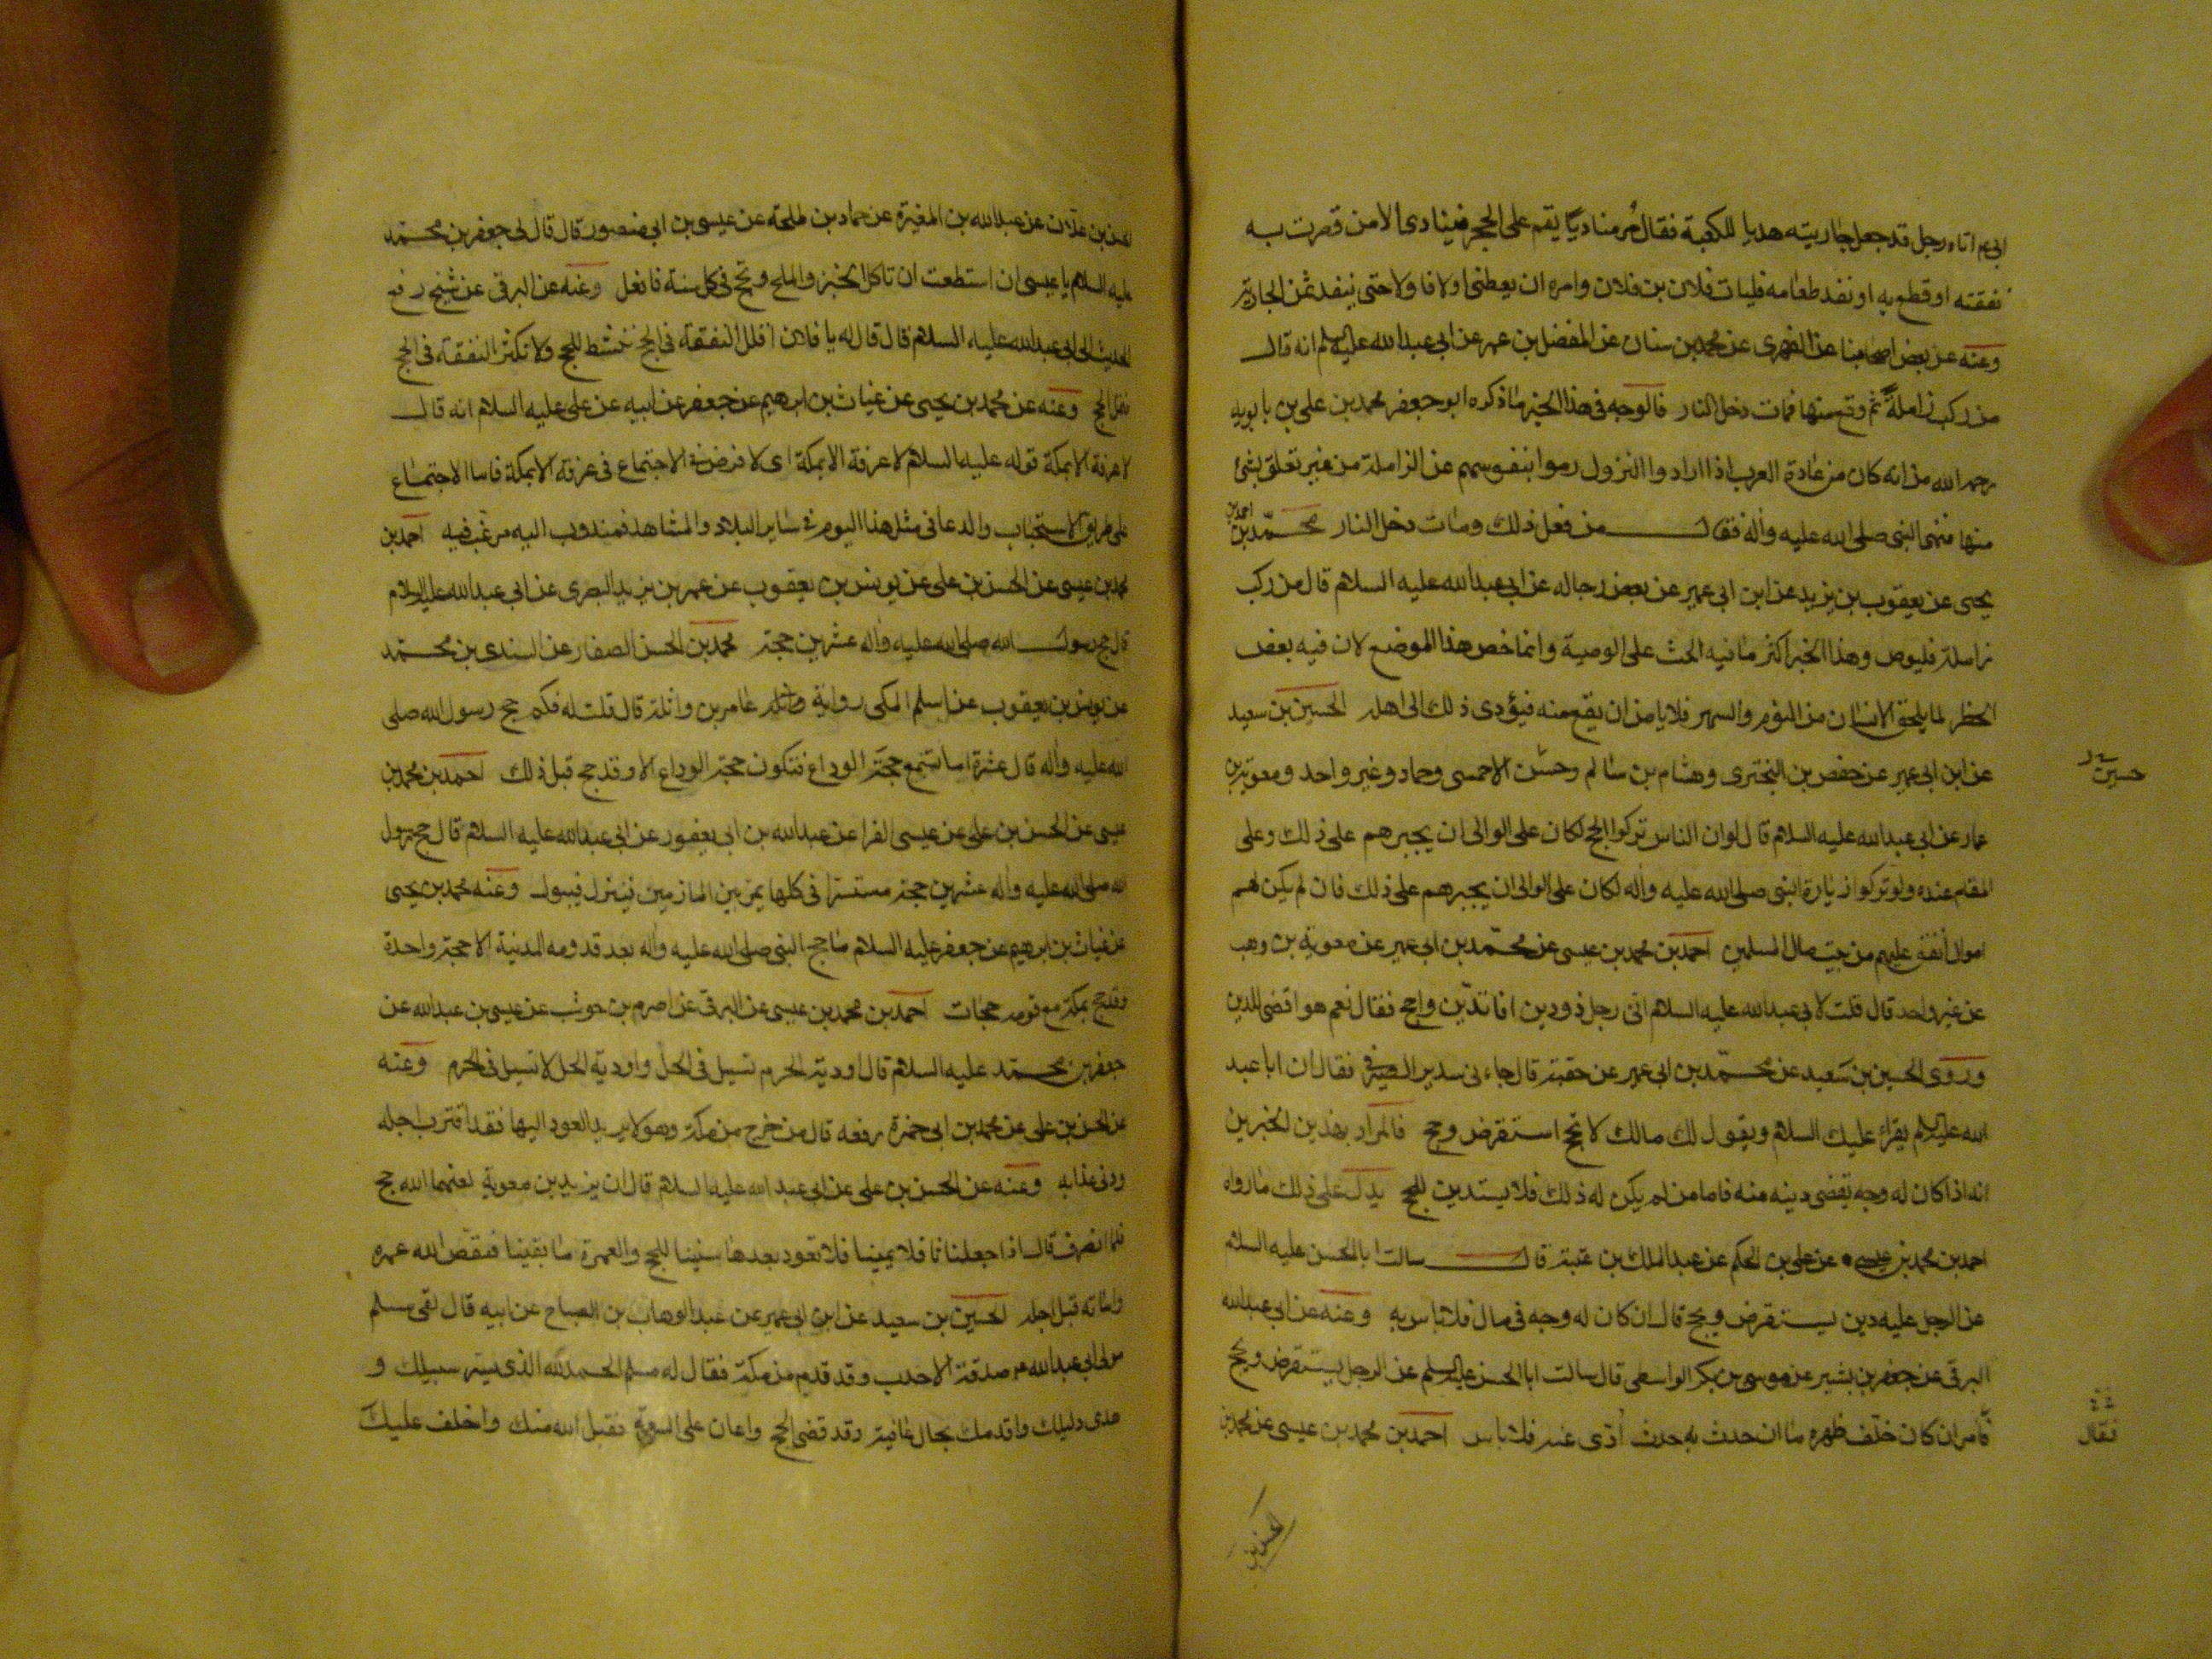 ابي ع م اتاه رجل قد جعل جاريته هديا للكعبة فقال مُر مناديًا يقم على الحجر فينادى الا من قصرت به
نفقته او قطع به او نفد طعامه فليات فلان بن فلان وامره ان يعطى اولا فاولا حتى ينفد ثمن الجارية
وعنه عن بعض اصحابنا عن الفهرى عن محمد بن سنان عن المفضل بن عمر عن ابى عبد الله عليه السلم انه قال
من ركب زاملةً ثم وقع منها فمات دخل النار فالوجه فى هذا الخبر ما ذكره ابو جعفر محمد بن على بن بابويه
رحمه الله من انه كان من عادة العرب اذا ارادوا النزول رموا بنفوسهم عن الزاملة من غير تعلق بشئ
منها فنهى النبى صلى الله عليه واله فقال من فعل ذلك ومات دخل النار محمّد بن احمد بن
يحيى عن يعقوب بن يزيد عن ابن ابى عمير عن بعض رجاله عن ابى عبد الله عليه السلام قال من ركب
زاملة فليوص وهذا الخبر اكثر ما فيه الحث على الوصية وانما خص هذا الموضع لان فيه بعض
الخطر لما يلحق الانسان من النوم والسهر فلا يامن ان يقع منه فيؤدى ذلك الى اهله الحسين بن سعيد
عن ابن ابى عمير عن حفص بن البخترى وهشام بن سالم وحسين الاحمسى وحماد وغير واحد ومعوية بن
حسين
عمار عن ابى عبد الله عليه السلام قال لو ان الناس تركوا الحج لكان على الوالى ان يجبرهم على ذلك وعلى
المقام عنده ولو تركوا زيارة النبى صلى الله عليه واله لكان على الوالى ان يجبرهم على ذلك فان لم يكن لهم
اموال انفق عليهم من بيت مال المسلمين احمد بن محمد بن عيسى عن محمّد بن ابى عمير عن معوية بن وهب
عن غير واحد قال قلت لابى عبد الله عليه السلام انى رجل ذو دين افاتدّين واحج فقال نعم هو اقضى للدين
وروى الحسين بن سعيد عن محمّد بن ابى عمير عن حقبة قال جاءنى سدير الصيرفى فقال ان ابا عبد
الله عليه السلم يقراء عليك السلام ويقول لك مالك لا تحج استقرض وحج فالمراد بهذين الخبرين
انه اذا كان له وجه يقضى دينه منه فاما من لم يكن له ذلك فلا يستدين للحج يدل على ذلك ما رواه
احمد بن محمد بن عيسى عن على بن الحكم عن عبد الملك بن عتبة قال سالت ابا الحسن عليه السلام
عن الرجل عليه دين يستقرض ويحج قال ان كان له وجه فى مال فلا باس به وعنه عن ابى عبد الله
البرقى عن جعفر بن بشير عن موسى بن بكر الواسطى قال سالت ابا الحسن عليه السلم عن الرجل يستقرض ويحج
ان كان خلف ظهره ما ان حدث به حدث اُدّى عنه فلا باس احمد بن محمد بن عيسى عن محمد بن
فقال
الحسن بن
الحسن بن علان عن عبد الله بن المغيرة عن حماد بن طلحة عن عيسى بن ابى منصور قال قال لى جعفر بن محمّد
عليه السلام يا عيسى ان استطعت ان تاكل الخبز والملح وتحج فى كل سنة فافعل وعنه عن البرقى عن شيخ رفع
الحديث الى ابى عبد الله عليه السلام قال قال له يا فلان اقلل النفقة فى الحج تنشط للحج ولا تكثر النفقة فى الحج
فتمل الحج وعنه عن محمد بن يحيى عن غياث بن ابرهيم عن جعفر عن ابيه عن على عليه السلام انه قال
لا عرفة الا بمكة قوله عليه السلام لا عرفة الا بمكة اى لا فرض فى الاجتماع فى عرفة الا بمكة فاما الاجتماع
على طريق الاستحباب والدعا فى مثل هذا اليوم فى ساير البلاد والمشاهد فمندوب اليه مرغب فيه احمد بن
محمد بن عيسى عن الحسن بن على عن يونس بن يعقوب عن عمر بن يزيد البصرى عن ابى عبد الله عليه السلام
قال حج رسول الله صلى الله عليه واله عشرين حجة محمد بن الحسن الصفار عن السندى بن محمّد
عن يونس بن يعقوب عن اسلم المكى رواية عامر بن واثلة قال قلت له فكم حج رسول الله صلى
الله عليه واله قال عشرة اما تسمع حجة الوداع فتكون حجة الوداع الا وقد حج قبل ذلك احمد بن محمد بن
عيسى عن الحسن بن على عن عيسى الفرا عن عبد الله بن ابى يعفور عن ابى عبد الله عليه السلام قال حج رسول
الله صلى الله عليه واله عشرين حجة مستسرا فى كلها يمر بين المازمين فينزل فيبول وعنه محمد بن يحيى
عن غياث بن ابرهيم عن جعفر عليه السلام ما حج النبى صلى الله عليه واله بعد قدومه المدينة الا حجة واحدة
وقد حج بمكة مع قومه حجات احمد بن محمد بن عيسى عن البرقى عن اصرم بن حوشب عن عيسى بن عبد الله عن
جعفر بن محمّد عليه السلام قال اودية الحرم تسيل فى الحل واودية الحل لا تسيل فى الحرم وعنه
عن الحسن بن على عن محمد بن ابى حمزة رفعه قال من خرج من مكة وهو لا يريد العود اليها فقد اقترب اجله
ودنى عذابه وعنه عن الحسن بن على عن ابى عبد الله عليه السلام قال ان يزيد بن معوية لعنهما الله حج
فلما انصرف قال اذا جعلنا ثافلا يمينا فلا نعود بعدها سنينا للحج والعمرة ما بقينا فنقص الله عمره
واماته قبل اجله الحسين بن سعيد عن ابن ابى عمير عن عبد الوهاب بن الصباح عن ابيه قال لقى مسلم
مولى ابى عبد الله ع م صدقة الاحدب وقد قدم من مكة فقال له مسلم الحمد لله الذى يسر سبيلك و
هدى دليلك واقدمك بحال عافية وقد قضى الحج واعان على السعة فقبل الله منك واخلف عليك